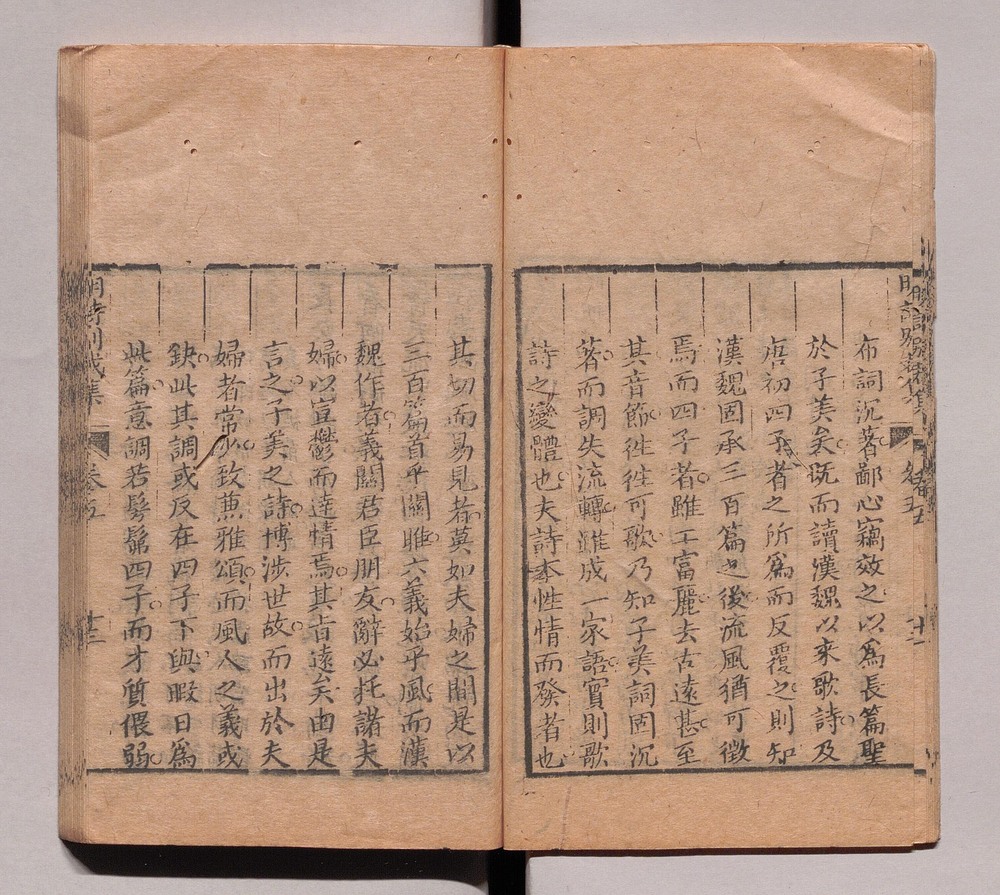 布詞沉著鄙心竊效之以爲長篇聖
於子美矣既而讀漢魏以來歌詩及
唐初四子者之所爲而反覆之則知
漢魏固承三百篇之後流風猶可徵
焉而四子者雖工富麗去古遠甚至
其音節徃徃可歌乃知子美詞固沉
著而調失流轉雖成一家語實則歌
詩之變體也夫詩本性情而發者也
其切而易見者莫如夫婦之間是以
三百篇首乎關雎六義始乎風而漢
魏作者義關君臣朋友辭必托諸夫
婦以宣鬱而達情焉其旨遠矣由是
言之子美之詩博涉世故而出於夫
婦者常少致兼雅頌而風人之義或
缺此其調或反在四子下與暇日爲
此篇意調若髣髴四子而才質偎弱
明詩別裁集
卷五
十二